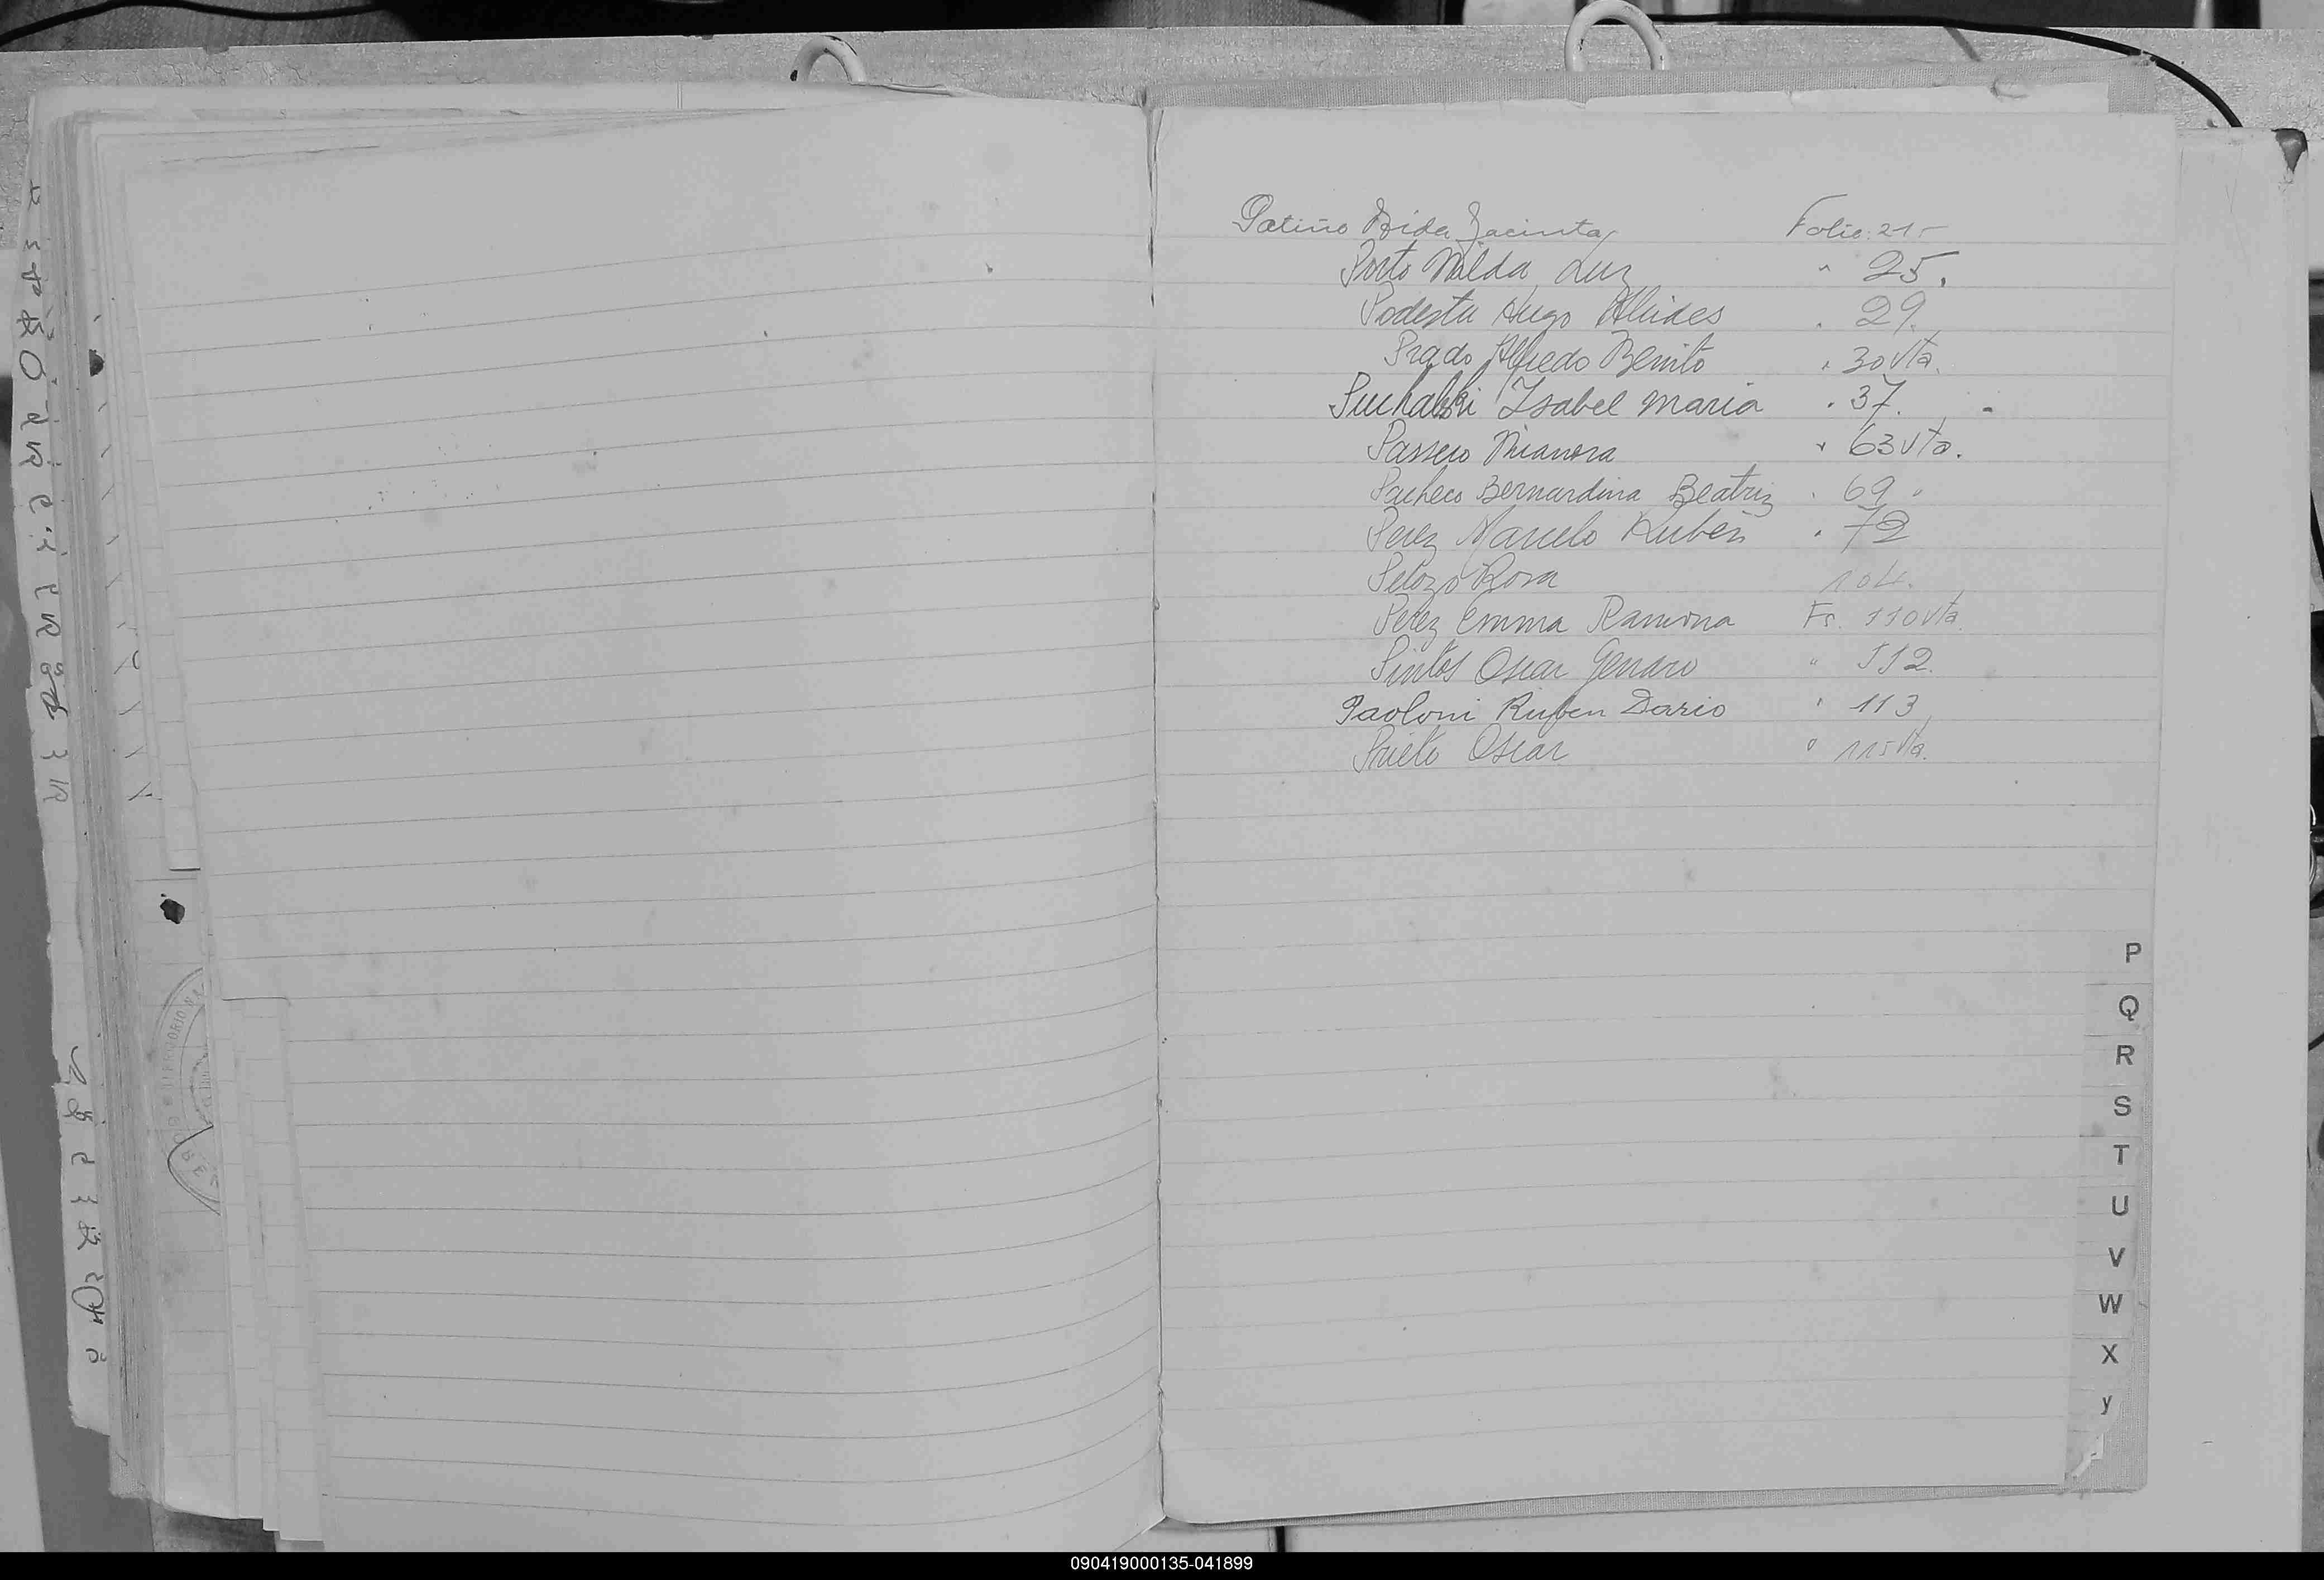 Patiño Bida Jacinta Folio: 21-
Porto Nilda Luz " 25.
Podesta Hugo Alcides " 29.
Prado Alfredo Benito " 30 vta.
Puchalski Isabel Maria " 37.
Passero Nianora " 63 vta.
Pacheco Bernardina Beatriz " 69
Perez Marcelo Rubén " 72
Pelozo Rosa 104.
Perez Emma Ramona Fs. 110 vta.
Pintos Oscar Genaro " 112.
Paoloni Ruben Dario " 113
Prieto Oscar " 115 vta.
P
Q
R
S
T
U
V
W
X
y
090419000135-041899